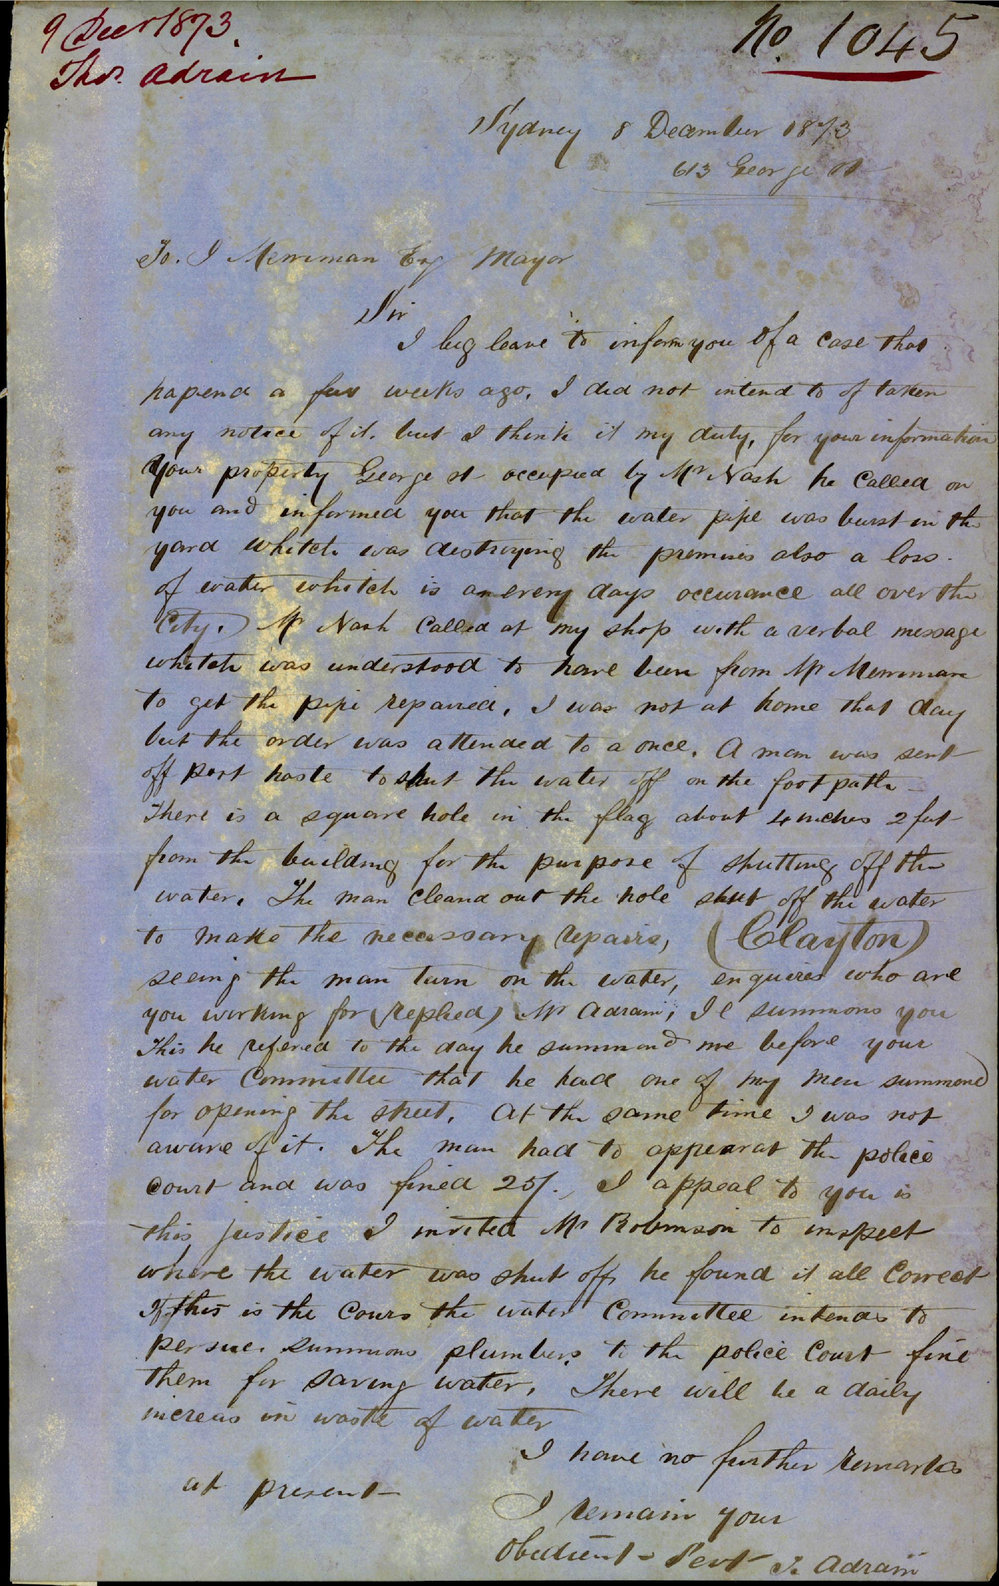 9 Decr 1873
No. 1045
Thos. Adrain
Sydney 8 December 1873
613 George St
To. J Merriman Esq Mayor
Sir
I beg leave to inform you of a case that
hapend a few weeks ago, I did not intend to of taken
any notice of it. but I think it my duty, for your information
Your property George st occupied by Mr Nash he Called on
you and informed you that the water pipe was burst in the
yard whitch was destroying the premises also a loss.
of water whitch is an every days occurance all over the
City.) Mr Nash Called at my shop with a verbal message
whitch was understood to have been from Mr Merriman
to get the pipe repaired, I was not at home that day
but the order was attended to a once. A man was sent
off post haste to shut the water off on the foot path
There is a square hole in the flag about 4 inches 2 feet
from the building for the purpose of shutting off the
water. The man cleand out the hole shut off the water
to make the necessary repairs, (Clayton)
seeing the man turn on the water, enquires who are
you working for (replied) Mr Adrain, Il summons you
This he refered to the day he summond me before your
water Committee that he had one of my men summoned
for opening the street. At the same time I was not
aware of it. The man had to appear at the police
Court and was fined 25/. I appeal to you is
this justice I invited Mr Robinson to inspect
where the water was shut off, he found it all Correct
If this is the Cours the water Committee intends to
persue. summons plumbers to the police Court fine
them for saving water, There will be a daily
increas in waste of water
I have no further remarks
at present
I remain your
Obedient Servt T. Adrain